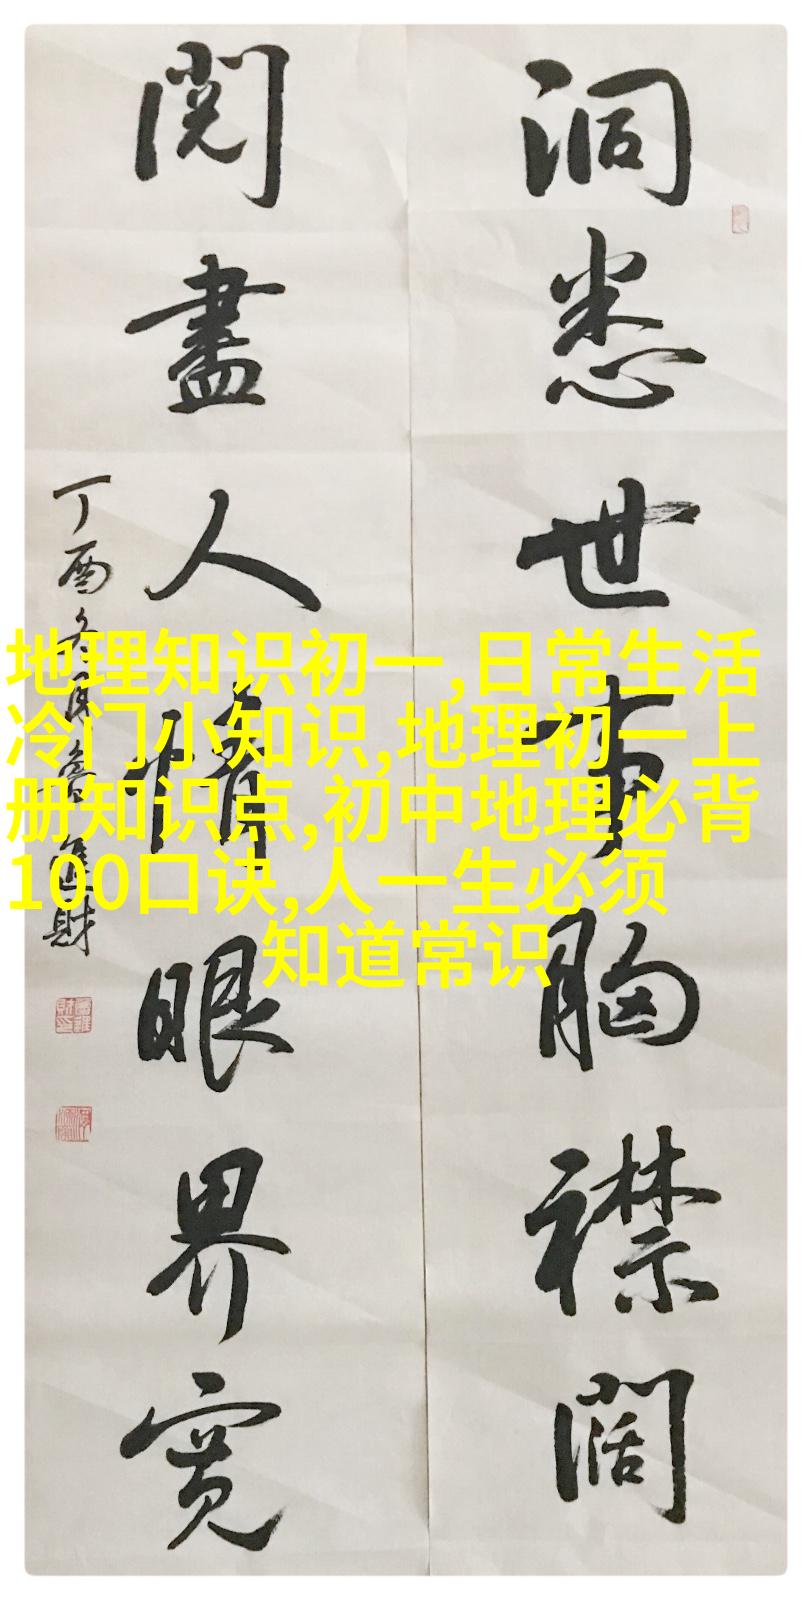 洞悉世事胸襟阔
閱盡人情眼界寬
丁酉冬月詹進財
地理知识初一,日常生活
冷门小知识,地理初一上
册知识点,初中地理必背
100口诀,人一生必须
知道常识